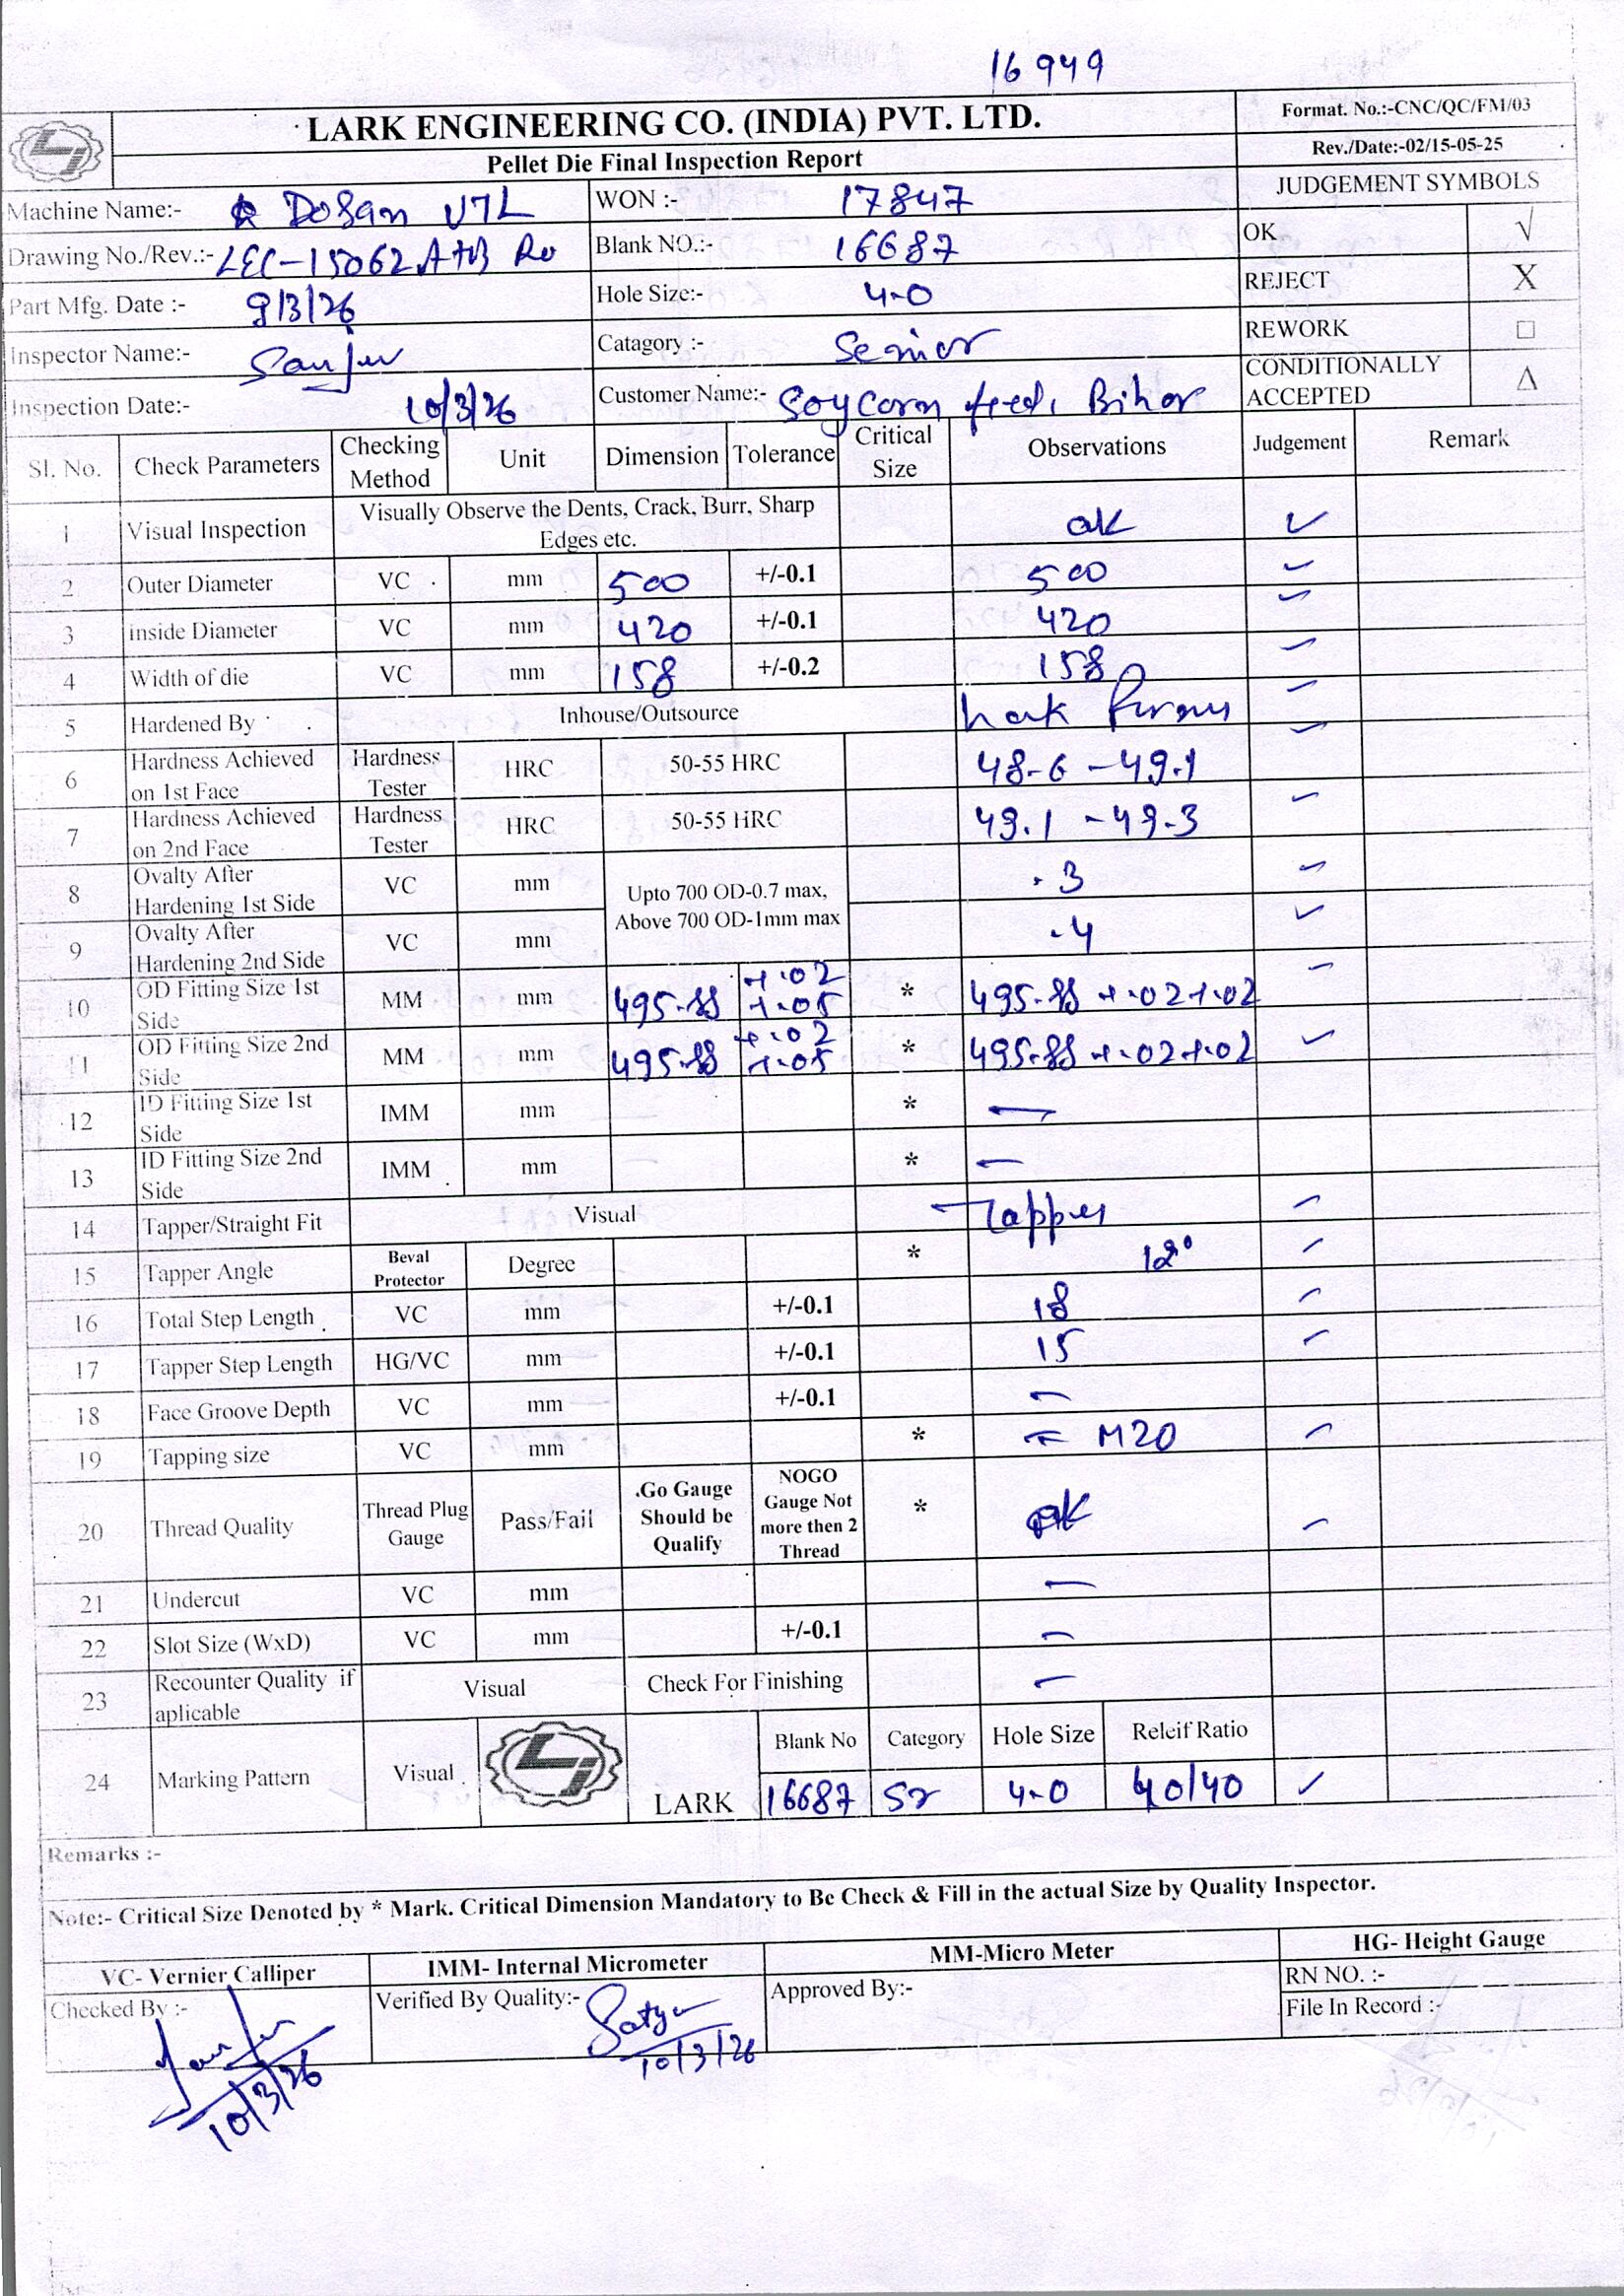 16949
LARK ENGINEERING CO. (INDIA) PVT. LTD.
Format. No.:-CNC/QC/FM/03
Pellet Die Final Inspection Report
Rev./Date:-02/15-05-25
Machine Name:- Dosan VTL WON :- 17847 JUDGEMENT SYMBOLS
Drawing No./Rev.:- LEC-15062 A+B R0 Blank NO.:- 16687 OK √
Part Mfg. Date :- 9/3/26 Hole Size:- 4.0 REJECT X
Inspector Name:- Sanjeev Catagory :- Senior REWORK □
Inspection Date:- 10/3/26 Customer Name:- Soycorn feed, Bihar CONDITIONALLY ACCEPTED Δ
Sl. No. Check Parameters Checking Method Unit Dimension Tolerance Critical Size Observations Judgement Remark
1 Visual Inspection Visually Observe the Dents, Crack, Burr, Sharp Edges etc. ok ✓
2 Outer Diameter VC mm 500 +/-0.1 500 ✓
3 inside Diameter VC mm 420 +/-0.1 420 ✓
4 Width of die VC mm 158 +/-0.2 158 ✓
5 Hardened By Inhouse/Outsource ✓
6 Hardness Achieved on 1st Face Hardness Tester HRC 50-55 HRC 48.6 - 49.1 ✓
7 Hardness Achieved on 2nd Face Hardness Tester HRC 50-55 HRC 49.1 - 49.3 ✓
8 Ovalty After Hardening 1st Side VC mm Upto 700 OD-0.7 max, Above 700 OD-1mm max .3 ✓
9 Ovalty After Hardening 2nd Side VC mm .4 ✓
10 OD Fitting Size 1st Side MM mm 495.88 +.02 +.05 * 495.88 +.02 +.02 ✓
11 OD Fitting Size 2nd Side MM mm 495.88 +.02 +.05 * 495.88 +.02 +.02 ✓
12 ID Fitting Size 1st Side IMM mm * —
13 ID Fitting Size 2nd Side IMM mm * —
14 Tapper/Straight Fit Visual Tapper ✓
15 Tapper Angle Beval Protector Degree * 12° ✓
16 Total Step Length VC mm +/-0.1 18 ✓
17 Tapper Step Length HG/VC mm +/-0.1 15 ✓
18 Face Groove Depth VC mm +/-0.1 —
19 Tapping size VC mm * M20 ✓
20 Thread Quality Thread Plug Gauge Pass/Fail Go Gauge Should be Qualify NOGO Gauge Not more then 2 Thread * ok ✓
21 Undercut VC mm —
22 Slot Size (WxD) VC mm +/-0.1 —
23 Recounter Quality if aplicable Visual Check For Finishing —
24 Marking Pattern Visual LARK Blank No Category Hole Size Releif Ratio
16687 Sr 4.0 40/40 ✓
Remarks :-
Note:- Critical Size Denoted by * Mark. Critical Dimension Mandatory to Be Check & Fill in the actual Size by Quality Inspector.
VC- Vernier Calliper IMM- Internal Micrometer MM-Micro Meter HG- Height Gauge
Checked By :- Verified By Quality:- Satya Approved By:- RN NO. :-
File In Record :-
10/3/26 10/3/26